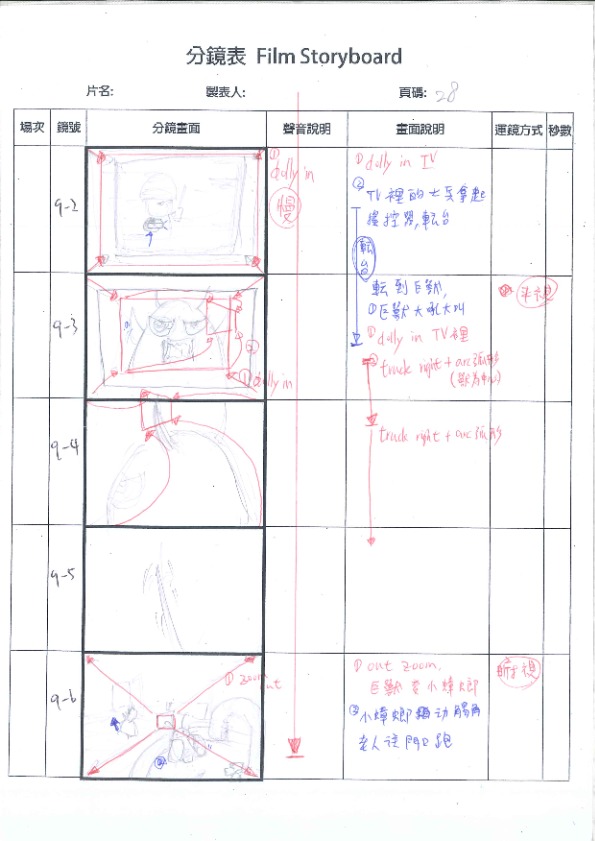 分鏡表 Film Storyboard
片名:
製表人:
頁碼: 28
場次 鏡號 分鏡畫面 聲音說明 畫面說明 運鏡方式 秒數
9-2
① dolly in
慢
① dolly in TV
② TV裡的士兵拿起
遙控器,転台
転台
9-3
転到巨獸,
① 巨獸大吼大叫
① dolly in TV裡
② truck right + arc弧形
(獸為中心)
② ① dolly in
平視
9-4
truck right + arc弧形
9-5
9-6
① zoom out
②
① out zoom,
巨獸變小蟑螂
② 小蟑螂动觸角
老人往門口跑
俯視